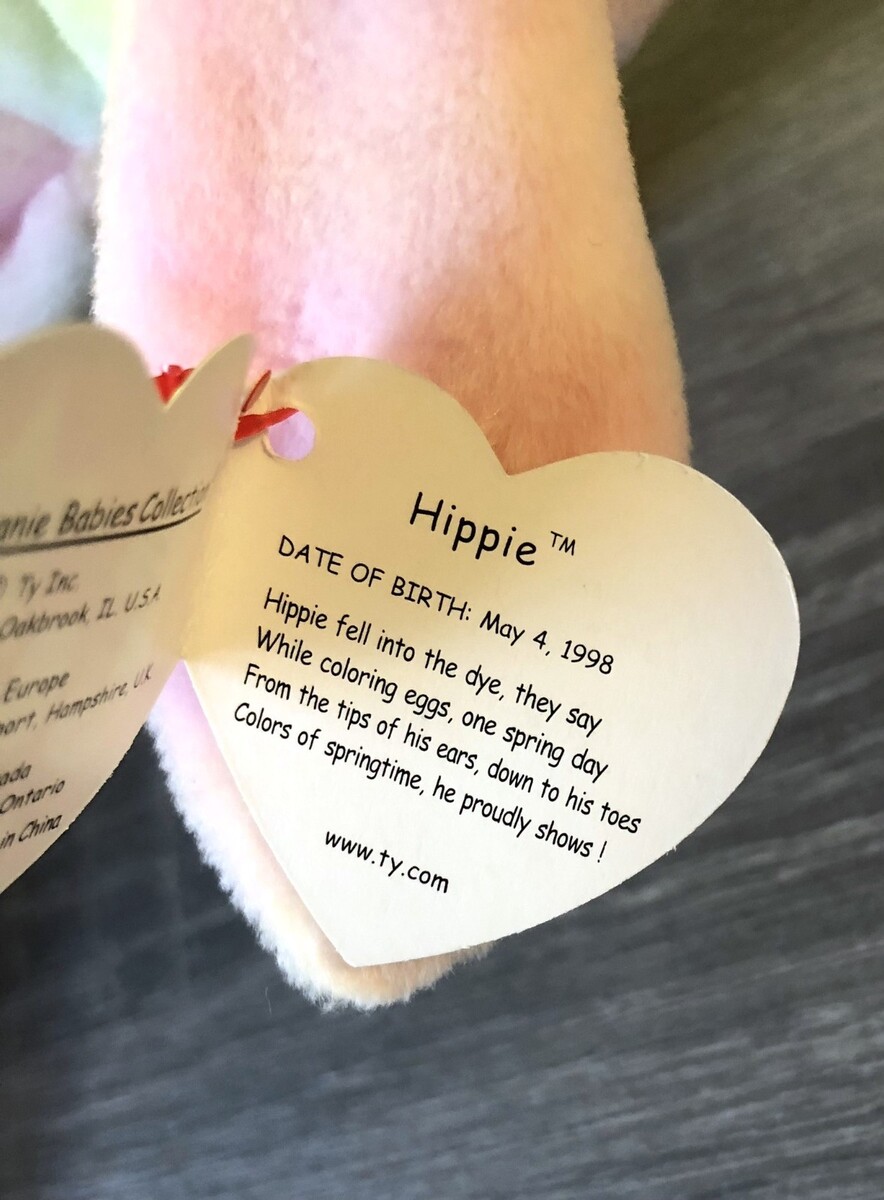 Babies Collection
Ty Inc.
Oakbrook, IL. U.S.A.
Europe
Hampshire, UK
Ontario
in China
Hippie™
DATE OF BIRTH: May 4, 1998
Hippie fell into the dye, they say
While coloring eggs, one spring day
From the tips of his ears, down to his toes
Colors of springtime, he proudly shows !
www.ty.com